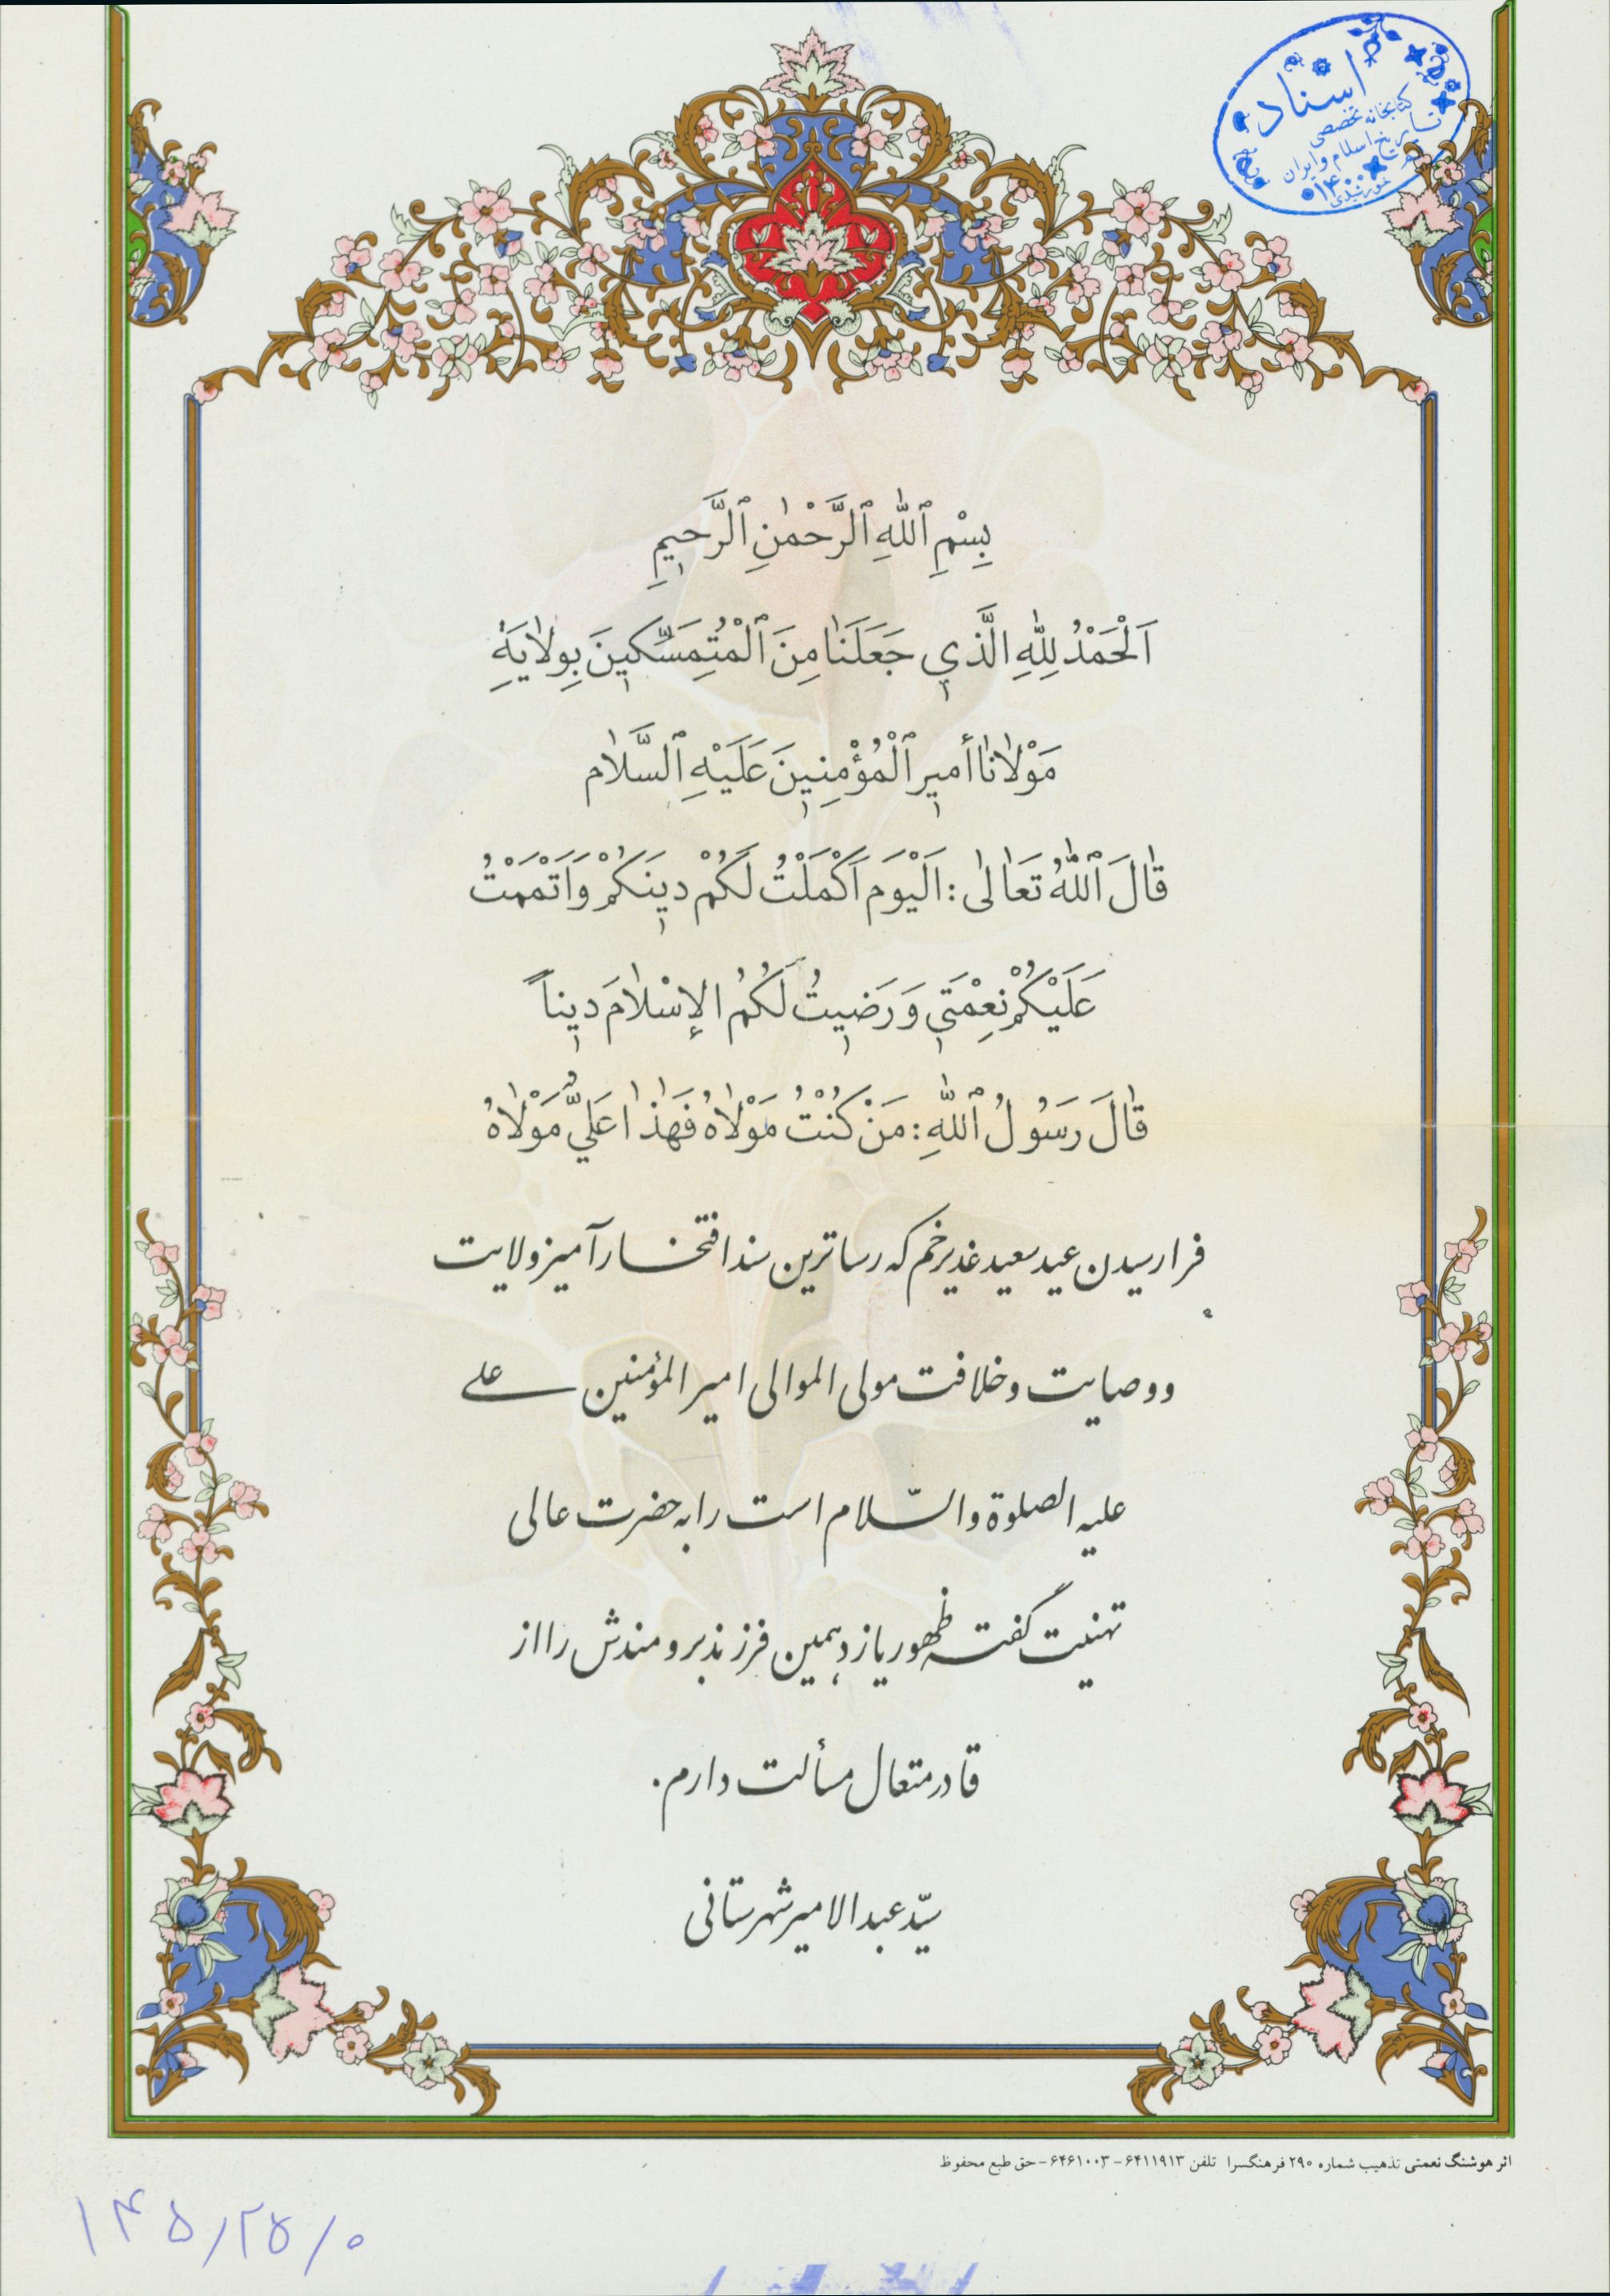 اسناد
کتابخانه تخصصی
تاریخ اسلام و ایران
بِسْمِ ٱللّٰهِ ٱلرَّحْمٰنِ ٱلرَّحیمِ
اَلْحَمْدُ لِلّٰهِ الَّذي جَعَلَنٰا مِنَ ٱلْمُتَمِسَّكینَ بِوِلاٰیَةِ
مَوْلاٰنٰا أمیرِ ٱلْمُؤْمِنینَ عَلَیْهِ ٱلسَّلاٰم
قٰالَ ٱللّٰهُ تَعٰالٰی : اَلْیَوْمَ اَكْمَلْتُ لَكُمْ دینَكُمْ وَاَتْمَمْتُ
عَلَیْكُمْ نِعْمَتي وَ رَضیتُ لَكُمُ الإسْلاٰمَ دیناً
قٰالَ رَسُولُ ٱللّٰهِ : مَنْ كُنْتُ مَوْلاٰهُ فَهٰذٰا عَلِيٌّ مَوْلاٰهُ
فرارسیدن عید سعید غدیر خم که رساترین سند افتخارآمیز ولایت
و وصایت و خلافت مولی الموالی امیرالمؤمنین علی
علیه الصلوة والسّلام است را به حضرت عالی
تهنیت گفته ظهور یازدهمین فرزند برومندش را از
قادر متعال مسألت دارم.
سیّد عبدالامیر شهرستانی
اثر هوشنگ نعمتی تذهیب شماره ۲۹۰ فرهنگسرا تلفن ۶۴۱۱۹۱۳ - ۶۴۶۱۰۰۳ - حق طبع محفوظ
۱۴۵/۲۵/۰